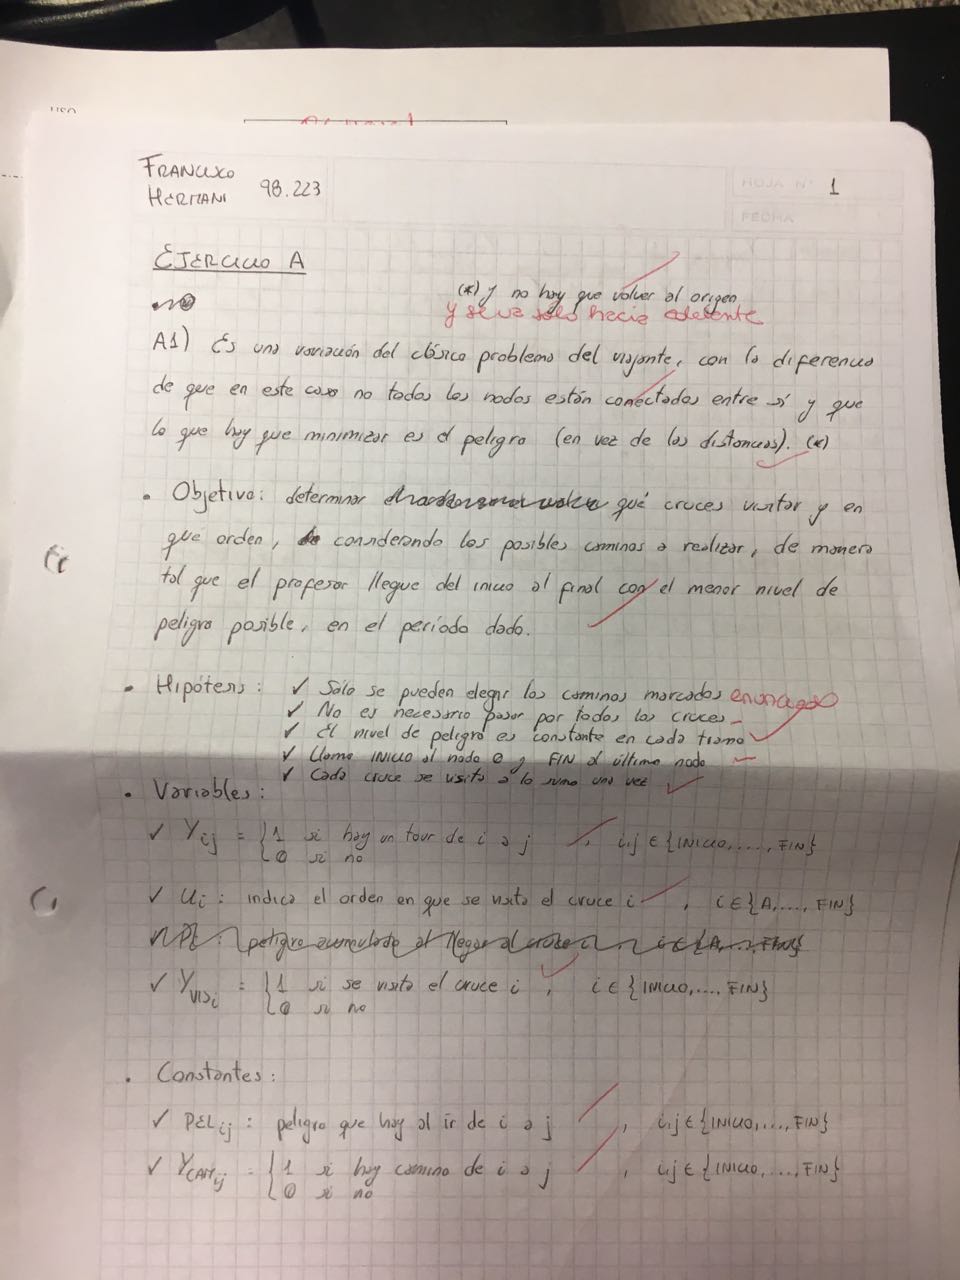 FRANCISCO
HERMANI
98.223
HOJA N° 1
FECHA
EJERCICIO A
(*) y no hay que volver al origen
y se va solo hacia adelante
A1) Es una variación del clásico problema del viajante, con la diferencia
de que en este caso no todos los nodos están conectados entre sí y que
lo que hay que minimizar es el peligro (en vez de las distancias). (*)
• Objetivo: determinar qué cruces visitar y en
que orden, considerando los posibles caminos a realizar, de manera
tal que el profesor llegue del inicio al final con el menor nivel de
peligro posible, en el período dado.
• Hipótesis: ✓ Sólo se pueden elegir los caminos marcados
✓ No es necesario pasar por todos los cruces
✓ El nivel de peligro es constante en cada tramo
✓ Llamo INICIO al nodo 0 y FIN al último nodo
✓ Cada cruce se visita a lo sumo una vez
• Variables:
✓ Yij = {1 si hay un tour de i a j , i,j ∈ {INICIO,...,FIN}
0 si no
✓ Ui: indica el orden en que se visita el cruce i , i ∈ {A,..., FIN}
✓ YVISi = {1 si se visita el cruce i , i ∈ {INICIO,..., FIN}
0 si no
• Constantes:
✓ PELij: peligro que hay al ir de i a j , i,j ∈ {INICIO,..., FIN}
✓ YCAMij = {1 si hay camino de i a j , i,j ∈ {INICIO,..., FIN}
0 si no